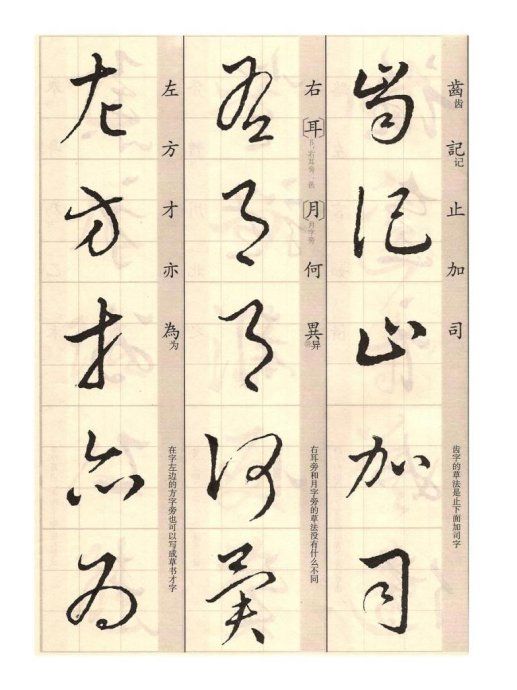 齒齿記记止加司
齿字的草法是止下面加司字
齒記止加司
右〔耳〕〔月〕何異异
右耳旁和月字旁的草法没有什么不同
右耳月何異
左方才亦為为
在字左边的方字旁也可以写成草书才字
左方才亦為